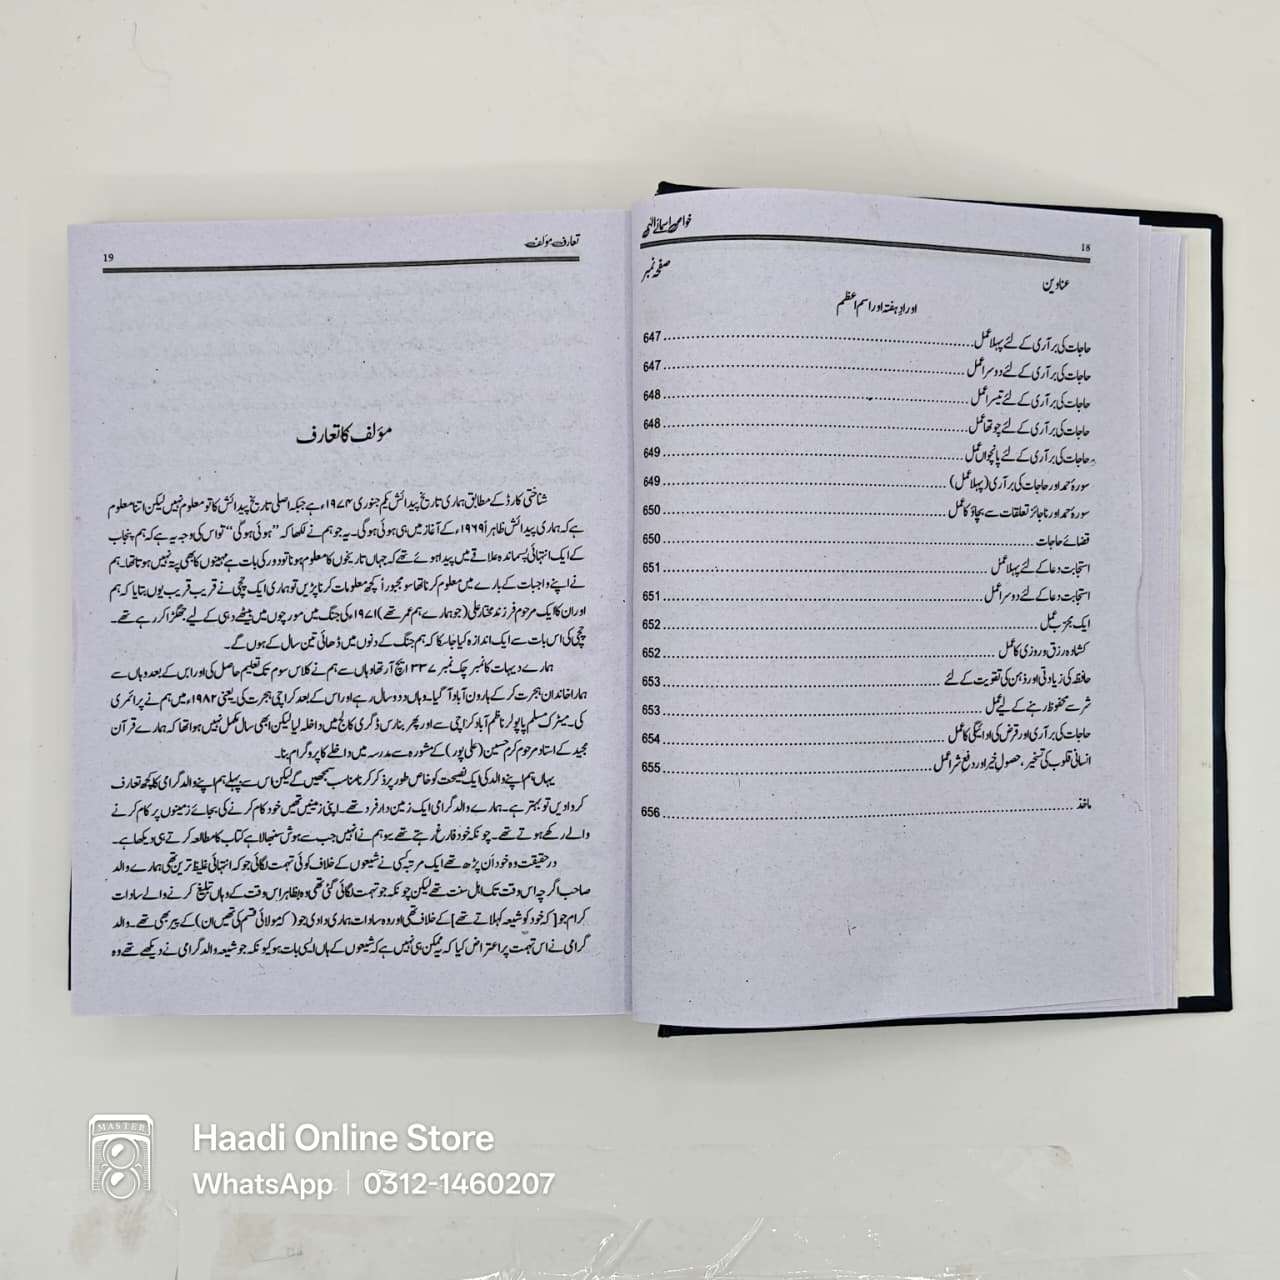 خواص اسمائے الٰہی
18
عناوین
صفحہ نمبر
اورادِ ہفتہ اور اسم اعظم
حاجات کی برآری کے لئے پہلا عمل 647
حاجات کی برآری کے لئے دوسرا عمل 647
حاجات کی برآری کے لئے تیسرا عمل 648
حاجات کی برآری کے لئے چوتھا عمل 648
حاجات کی برآری کے لئے پانچواں عمل 649
سورۂ حمد اور حاجات کی برآری (پہلا عمل) 649
سورۂ حمد اور ناجائز تعلقات سے بچاؤ کا عمل 650
قضائے حاجات 650
استجابت دعا کے لئے پہلا عمل 651
استجابت دعا کے لئے دوسرا عمل 651
ایک مجرّب عمل 652
کشادہ رزق و روزی کا عمل 652
حافظہ کی زیادتی اور ذہن کی تقویت کے لئے 653
شر سے محفوظ رہنے کے لیے عمل 653
حاجات کی برآری اور قرض کی ادائیگی کا عمل 654
انسانی قلوب کی تسخیر، حصولِ خیر اور دفعِ شر کا عمل 655
ماخذ 656
تعارف مؤلف
19
مؤلف کا تعارف
شناختی کارڈ کے مطابق ہماری تاریخ پیدائش یکم جنوری ۱۹۷۴ء ہے جبکہ اصلی تاریخ پیدائش کا تو معلوم نہیں لیکن اتنا معلوم
ہے کہ ہماری پیدائش ظاہراً ۱۹۶۹ء کے آغاز میں ہی ہوئی ہوگی۔ یہ جو ہم نے لکھا کہ ’’ہوئی ہوگی‘‘ تو اس کی وجہ یہ ہے کہ ہم پنجاب
کے ایک انتہائی پسماندہ علاقے میں پیدا ہوئے تھے کہ جہاں تاریخوں کا معلوم ہونا تو دور کی بات ہے مہینوں کا بھی پتہ نہیں ہوتا تھا۔ ہم
نے اپنے واجبات کے بارے میں معلوم کرنا تھا سو مجبوراً کچھ معلومات کرنا پڑیں تو ہماری ایک چچی نے قریب قریب یوں بتایا کہ ہم
اور ان کا ایک مرحوم فرزند مختار علی (جو ہمارے ہم عمر تھے) ۱۹۷۱ء کی جنگ میں مورچوں میں بیٹھے دہی کے لیے جھگڑا کر رہے تھے۔
چچی کی اس بات سے ایک اندازہ کیا جا سکا کہ ہم جنگ کے دنوں میں ڈھائی تین سال کے ہوں گے۔
ہمارے دیہات کا نمبر چک نمبر ۳۳۷ ایچ آر تھا وہاں سے ہم نے کلاس سوم تک تعلیم حاصل کی اور اس کے بعد وہاں سے
ہمارا خاندان ہجرت کر کے ہارون آباد آ گیا۔ وہاں دو سال رہے اور اس کے بعد کراچی ہجرت کی یعنی ۱۹۸۲ میں ہم نے پرائمری
کی۔ میٹرک مسلم پاپولر ناظم آباد کراچی سے اور پھر بنارس ڈگری کالج میں داخلہ لیا لیکن ابھی سال مکمل نہیں ہوا تھا کہ ہمارے قرآن
مجید کے استاد مرحوم کرم حسین (علی پور) کے مشورہ سے مدرسہ میں داخلے کا پروگرام بنا۔
یہاں ہم اپنے والد کی ایک نصیحت کو خاص طور پر ذکر کرنا مناسب سمجھیں گے لیکن اس سے پہلے ہم اپنے والد گرامی کا کچھ تعارف
کروا دیں تو بہتر ہے۔ ہمارے والد گرامی ایک زمین دار فرد تھے۔ اپنی زمینیں تھیں خود کام کرنے کی بجائے زمینوں پر کام کرنے
والے رکھے ہوتے تھے۔ چونکہ خود فارغ رہتے تھے سو ہم نے انہیں جب سے ہوش سنبھالا ہے کتاب کا مطالعہ کرتے ہی دیکھا ہے۔
درحقیقت وہ خود اَن پڑھ تھے ایک مرتبہ کسی نے شیعوں کے خلاف کوئی تہمت لگائی جو کہ انتہائی غلیظ ترین تھی ہمارے والد
صاحب اگرچہ اس وقت تک اہل سنت تھے لیکن چونکہ جو تہمت لگائی گئی تھی وہ بظاہر اس وقت کے وہاں تبلیغ کرنے والے سادات
کرام جو [کہ خود کو شیعہ کہلاتے تھے] کے خلاف تھی اور وہ سادات ہماری دادی جو (کہ مولائی قسم کی تھیں ان) کے پیر بھی تھے۔ والد
گرامی نے اس تہمت پر اعتراض کیا کہ یہ ممکن ہی نہیں ہے کہ شیعوں کے ہاں ایسی بات ہو کیونکہ جو شیعہ والد گرامی نے دیکھے تھے وہ
MASTER
Haadi Online Store
WhatsApp | 0312-1460207